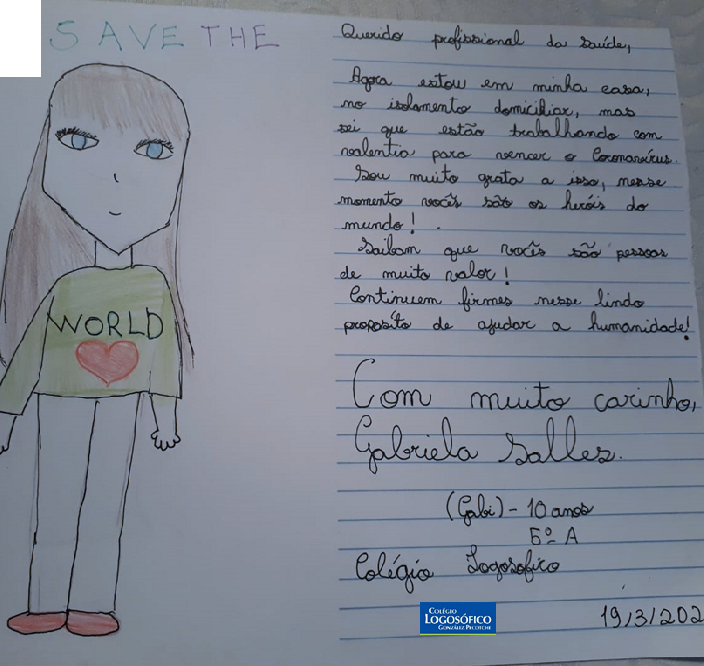 SAVE THE
WORLD
Querido profissional da saúde,
Agora estou em minha casa,
no isolamento domiciliar, mas
sei que estão trabalhando com
valentia para vencer o Coronavírus.
Sou muito grata a isso, nesse
momento vocês são os heróis do
mundo! .
Saibam que vocês são pessoas
de muito valor!
Continuem firmes nesse lindo
proposíto de ajudar a humanidade!
Com muito carinho,
Gabriela Salles.
(Gabi) - 10 anos
5º A
Colégio Logosofico
COLÉGIO
LOGOSÓFICO
GONZÁLEZ PECOTCHE
19/3/202